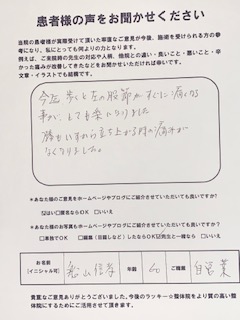 患者様の声をお聞かせください
当院の患者様が実際受けて頂いた率直なご意見が今後、施術を受けられる方の参
考になり、私にとっても何よりの力となります。
例えば、ご来院時の先生の対応や人柄、他院との違い・良いこと・悪いこと・辛
かった痛みが改善してきたなどをお聞かせいただければ幸いです。
文章・イラストでも結構です。
今迄 歩くと左の股節がすぐに痛くなる
事がとても楽になりました
膝もいすから立ち上がる時の痛みが
なくなりました。
*あなた様のご意見をホームページやブログにご紹介させていただいても良いですか?
☑はい □匿名ならOK □いいえ
*あなた様のお写真もホームページやブログにご紹介させていただいても良いですか?
□単独でOK □編集(目隠しなど)したならOK ☑先生と一緒なら □いいえ
お名前
(イニシャル可)
年齢 60 ご職業 自営業
貴重なご意見ありがとうございました。今後のラッキー☆整体院をより質の高い整
体院にするためにご活用させて頂きます。